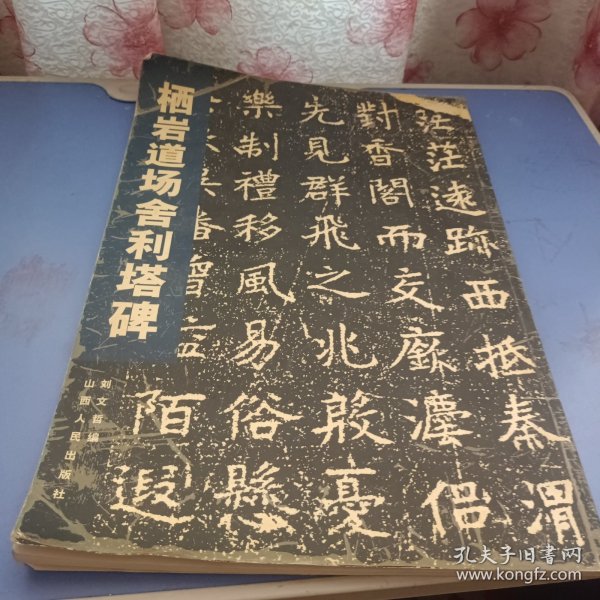 栖岩道场舍利塔碑
刘文哲编
山西人民出版社
茫遠跡西抵秦渭
對香閣而交靡瀍侣
先見群飛之兆殷憂
樂制禮移風易俗懸
陌遐
孔夫子旧书网
www.kongfz.com